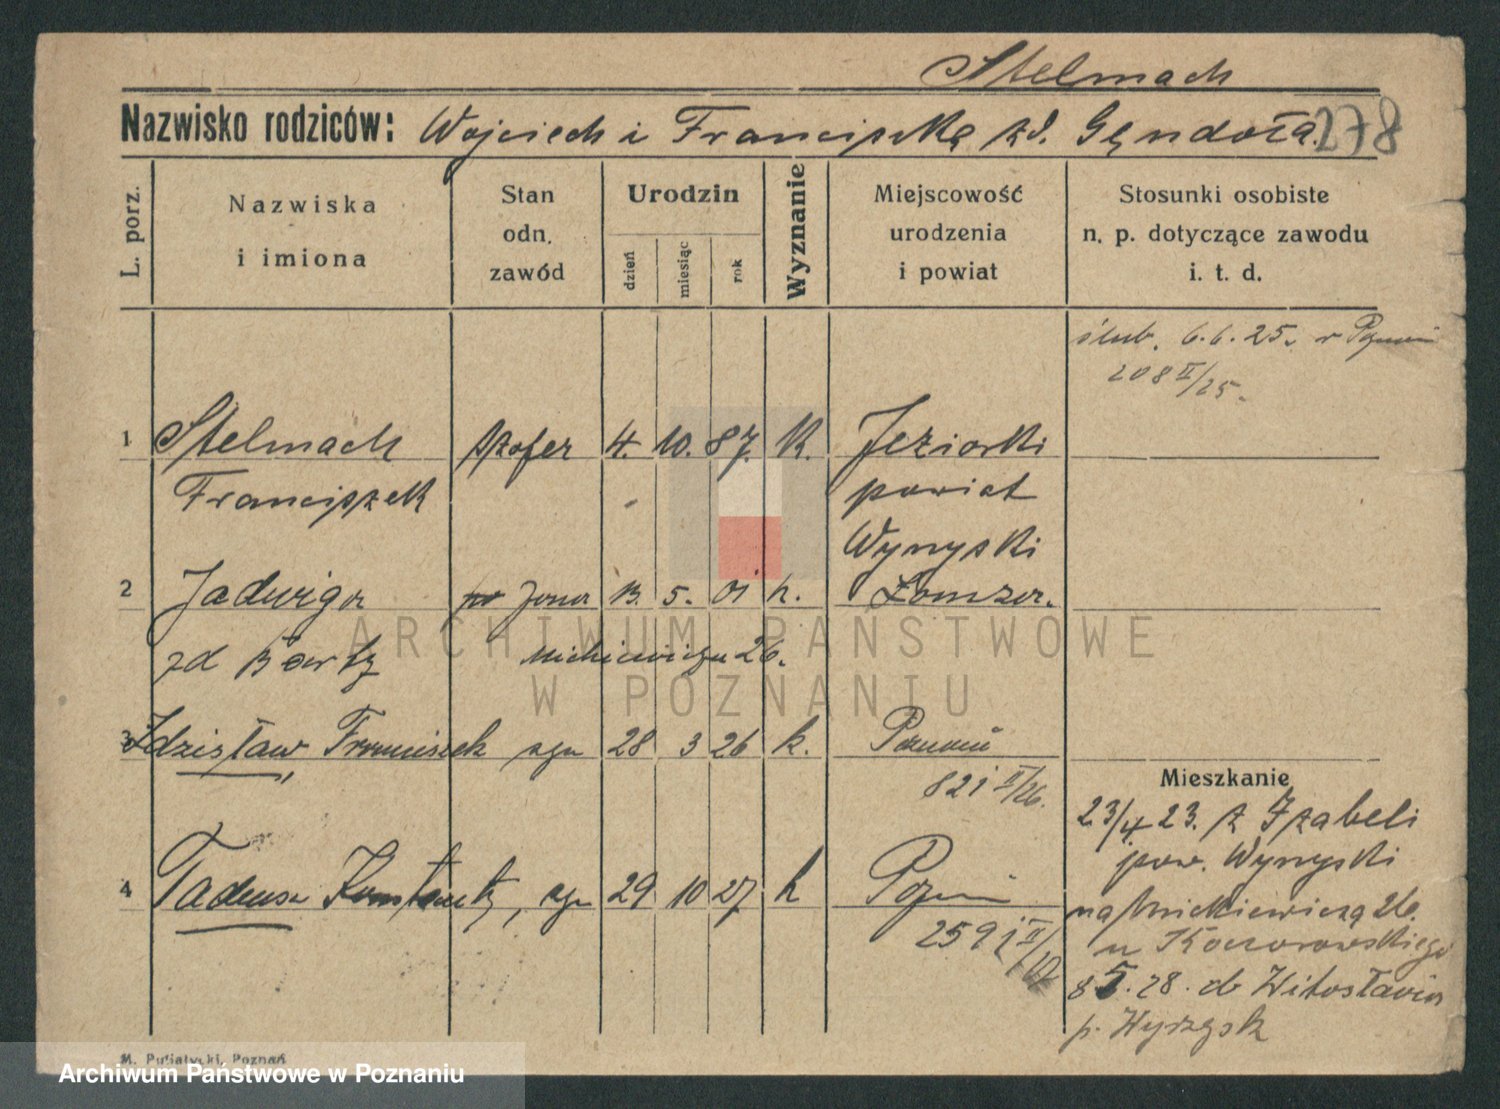 Stelmach
Nazwisko rodziców: Wojciech i Franciszka zd. Gęndoła. 278
L. porz.
Nazwiska
i imiona
Stan
odn.
zawód
Urodzin
dzień
miesiąc
rok
Wyznanie
Miejscowość
urodzenia
i powiat
Stosunki osobiste
n. p. dotyczące zawodu
i. t. d.
ślub. 6.6.25. w Poznań
208 II/25.
1 Stelmach szofer 4. 10. 87. K. Jeziorki
Franciszek powiat
Wyrzyski
2 Jadwiga żona 13. 5. 01 k. Łomża.
zd Mickiewicza 26.
3 Zdzisław Franciszek syn 28 3 26 k. Poznań
821 II/26.
Mieszkanie
23/4. 23. z Izabeli
pow. Wyrzyski
4 Tadeusz Konstanty, syn 29 10 27 k Poznań
na Mickiewicza 26.
u Koczorowskiego
8 5. 28. do Witosławia
p. Wyrzysk
M. Putiatycki, Poznań
ARCHIWUM PAŃSTWOWE
W POZNANIU
Archiwum Państwowe w Poznaniu